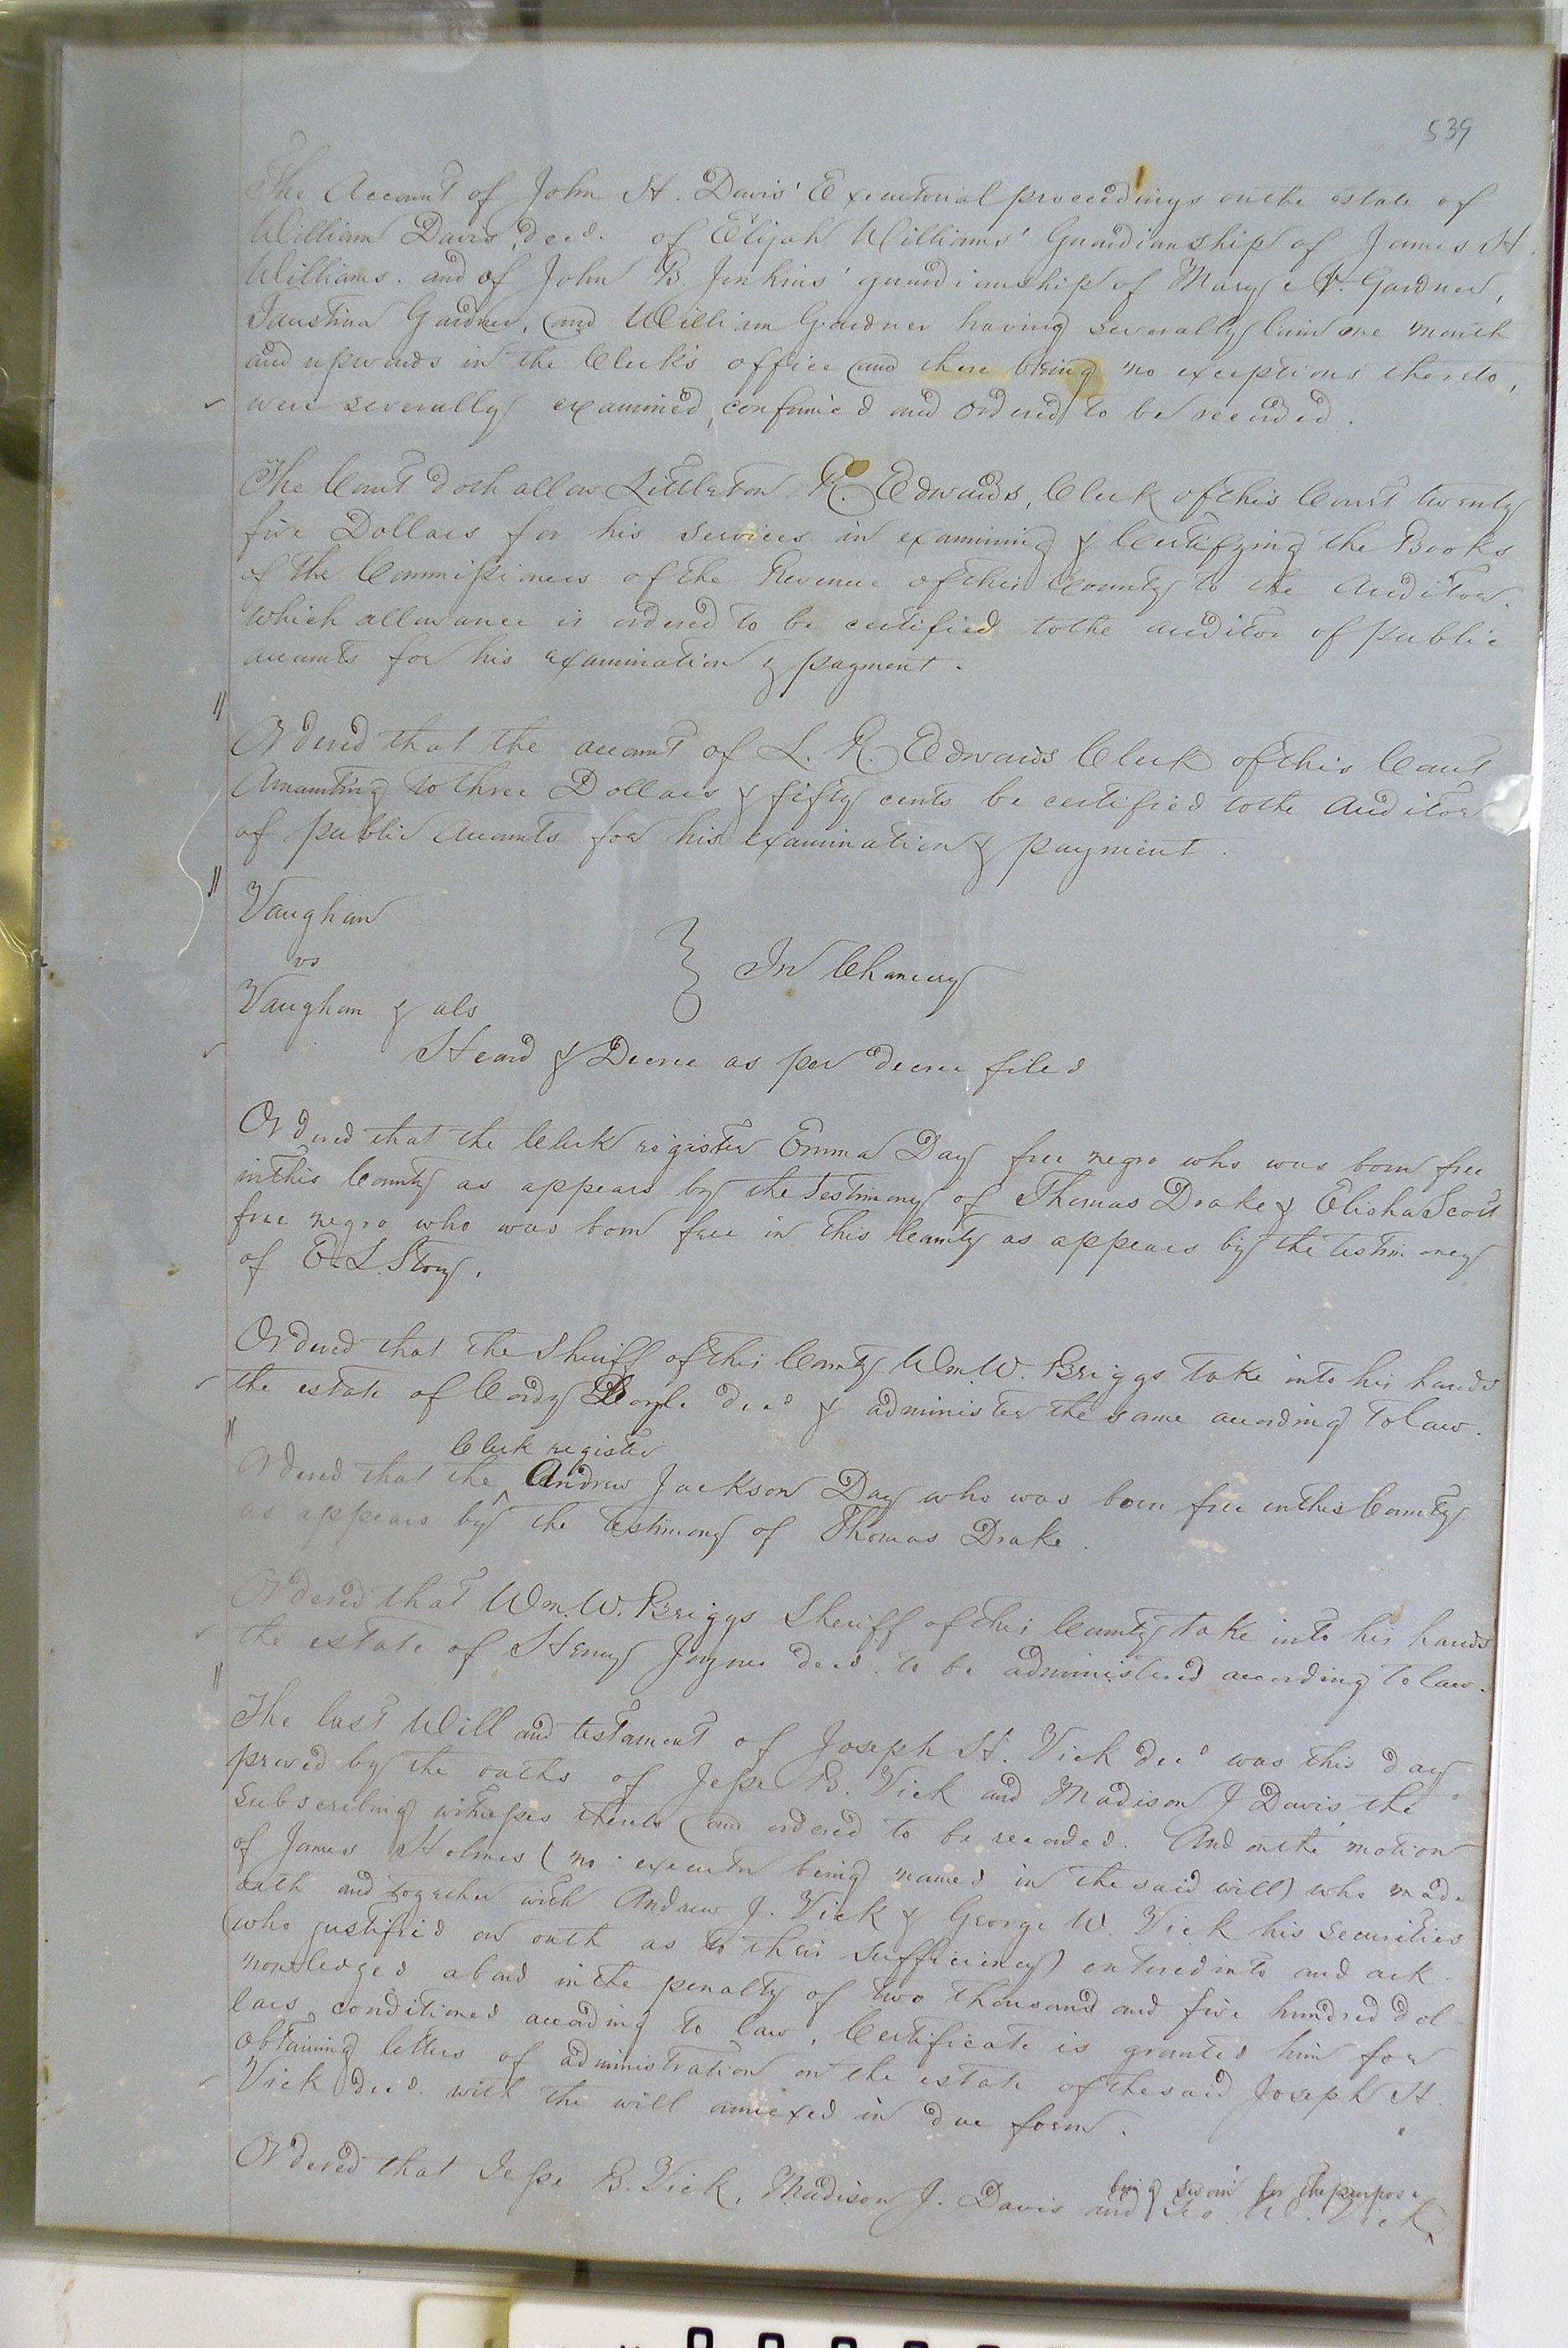 539
The Account of John H. Davis' Executorial proceedings on the estate of
William Davis, decd. of Elijah Williams' Guardianship of James H.
Williams. and of John B. Jenkins' guardianship of Mary N. Gardner,
Faustina Gardner, and William Gardner having severally lain one month
and upwards in the Clerk's office and there being no exceptions thereto,
were severally examined, confirmed and ordered to be recorded.
The Court doth allow Littleton R. Edwards, Clerk of this Court twenty
five Dollars for his services in examining & Certifying the Books
of the Commissioners of the Revenue of this County to the Auditor.
which allowance is ordered to be certified to the auditor of public
accounts for his examination & payment.
Ordered that the account of L. R. Edwards Clerk of this Court
Amounting to three Dollars & fifty cents be certified to the Auditor
of public Accounts for his examination & payment.
Vaughan
vs
Vaughan & als
} In Chancery
Heard & Decree as per decree filed
Ordered that the Clerk register Emma Day free negro who was born free
in this County as appears by the testimony of Thomas Drake & Elisha Scott
free negro who was born free in this County as appears by the testimoney
of E. L. Story.
Ordered that the Sheriff of this County Wm W. Briggs take into his hands
the estate of Cordy Doyle decd & administer the same according to law.
Clerk register
Ordered that the ^ Andrew Jackson Day who was born free in this County
as appears by the testimony of Thomas Drake.
Ordered that Wm. W. Briggs Sheriff of this County take into his hands
the estate of Henry Joyner decd. to be administered according to law.
The last Will and testament of Joseph H. Vick decd was this day
proved by the oaths of Jesse B. Vick and Madison J Davis the
subscribing witnesses thereto and ordered to be recorded. And on the motion
of James Holmes (no executor being named in the said will) who made
oath and together with Andrew J. Vick & George W. Vick his securities
(who justified on oath as to their sufficiency) entered into and ack-
nowledged a bond in the penalty of two thousand and five hundred dol-
lars, conditioned according to law, Certificate is granted him for
obtaining letters of administration on the estate of the said Joseph H.
Vick decd. with the will annexed in due form.
being sworn for the purpose
Ordered that Jesse B. Vick, Madison J. Davis and Geo. W. Vick,